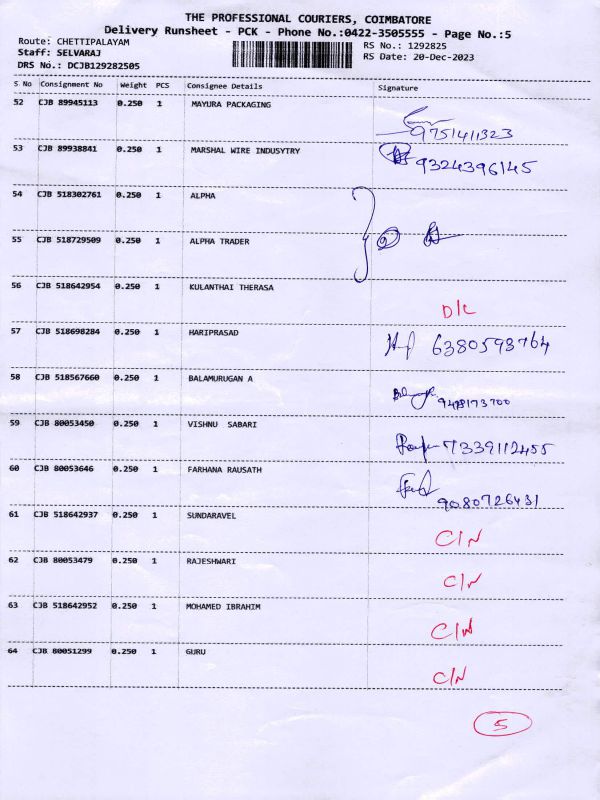 THE PROFESSIONAL COURIERS, COIMBATORE
Delivery Runsheet - PCK - Phone No.:0422-3505555 - Page No.:5
Route: CHETTIPALAYAM RS No.: 1292825
Staff: SELVARAJ RS Date: 20-Dec-2023
DRS No.: DCJB129282505
S No Consignment No Weight PCS Consignee Details Signature
52 CJB 89945113 0.250 1 MAYURA PACKAGING
9751411323
53 CJB 89938841 0.250 1 MARSHAL WIRE INDUSYTRY 9324396145
54 CJB 518302761 0.250 1 ALPHA
55 CJB 518729509 0.250 1 ALPHA TRADER
56 CJB 518642954 0.250 1 KULANTHAI THERASA
D/L
57 CJB 518698284 0.250 1 HARIPRASAD 6380593764
58 CJB 518567660 0.250 1 BALAMURUGAN A
59 CJB 80053450 0.250 1 VISHNU SABARI
7339112455
60 CJB 80053646 0.250 1 FARHANA RAUSATH
9080726431
61 CJB 518642937 0.250 1 SUNDARAVEL
C/N
62 CJB 80053479 0.250 1 RAJESHWARI
C/N
63 CJB 518642952 0.250 1 MOHAMED IBRAHIM
C/N
64 CJB 80051299 0.250 1 GURU
C/N
5